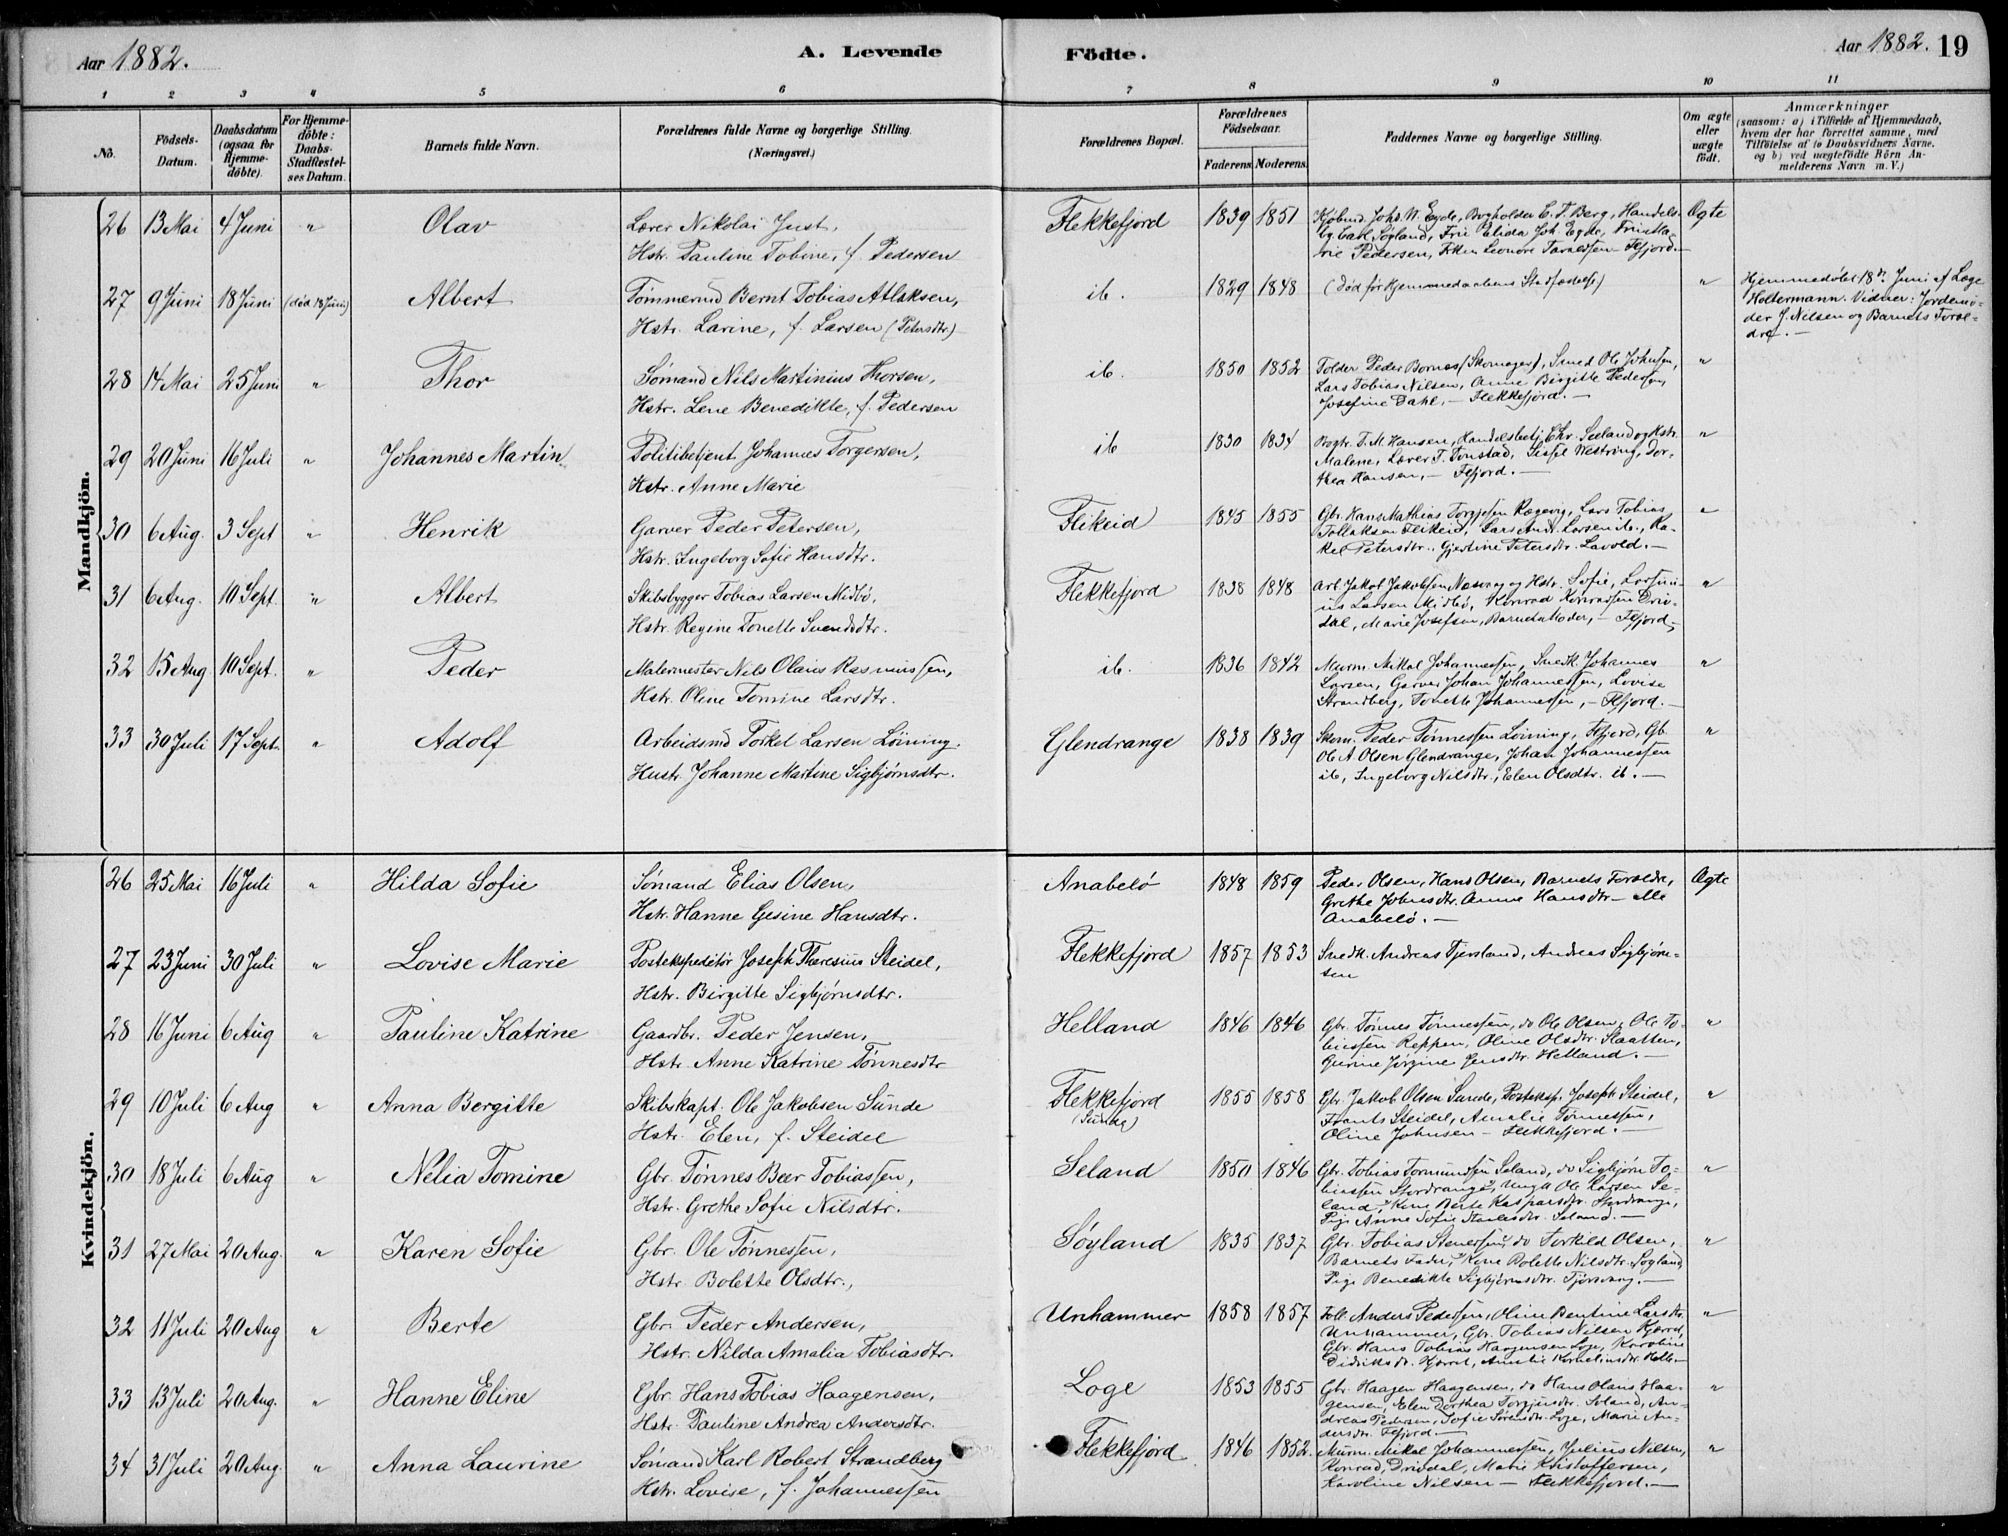 Aar 1882. A. Levende Födte. Aar 1882. 19
1 2 3 4 5 6 7 8 9 10 11
No. Födsels-Datum. Daabsdatum (ogsaa for Hjemmedöbte). For Hjemmedöbte: Daabs-Stadfæstelses Datum. Barnets fulde Navn. Forældrenes fulde Navne og borgerlige Stilling. (Næringsvei.) Forældrenes Bopæl. Forældrenes Födselsaar. Faderens. Moderens. Faddernes Navne og borgerlige Stilling. Om ægte eller uægte födt. Anmærkninger (saasom: a) i Tilfælde af Hjemmedaab, hvem der har forrettet samme, med Tilföielse af to Daabsvidners Navne, og b) ved uægtefödte Börn Anmelderens Navn m. V.)
Mandkjön.
26 13 Mai 4 Juni " Olav Lærer Nikolai Just, Flekkefjord 1839 1851 Kjøbmd. Johs. W. Eyde, Bogholder E. T. Berg, Handels- Ægte
Hstr. Pauline Tobine, f. Pedersen
27 9 Juni 18 Juni (død 18 Juni) Albert Tømmermd Bernt Tobias Atlaksen, ib. 1829 1848 (død før Hjemmedaabens Stadfæstelse) " Hjemmedøbt 18de Juni af Læge
Hstr. Larine, f. Larsen (Petersdtr.) Holtermann. Vidner: Jordemo-
der J. Nilsen og Barnets Foræl-
dre. —
28 14 Mai 25 Juni " Thor Sømand Nils Martinius Thorsen, ib. 1850 1852 Tolder Peder Bornas (Skomager), Smed Ole Johnsen, "
Hstr. Lene Benedikte, f. Pedersen Lars Tobias Nilsen, Anne Birgitte Pedersen,
Josefine Dahl, — Flekkefjord. —
29 20 Juni 16 Juli " Johannes Martin Politibetjent Johannes Torgersen, ib 1830 1834 Bogtr. T. M. Hansen, Handelsbetj. Chr. Seeland og Hstr. "
Hstr. Anne Marie Malene, Lærer T. Tonstad, Sissel Westring, Dor-
thea Hansen, — Ffjord. —
30 6 Aug. 3 Sept " Henrik Garver Peder Petersen, Flikeid 1845 1855 Gbr. Hans Mathias Torgjesen Rægevig, Lars Tobias "
Hstr. Ingeborg Sofie Hansdtr. Tollaksen Flikeid, Lars Andr. Larsen ib., Ra-
kel Petersdtr., Gjertine Petersdtr. Lavold. —
31 6 Aug. 10 Sept. " Albert Skibsbygger Tobias Larsen Midbö, Flekkefjord 1838 1848 Arb. Jakob Jakobsen Næsvaag og Hstr. Sofie, "
Hstr. Regine Tonette Svendsdtr. Larsen Midbö, Konrad Konradsen Driv-
dal, Marie Josefsen, Barnets Moder, — Ffjord.
32 15 Aug 10 Sept. " Peder Malermester Nils Olaus Rasmussen, ib. 1836 1842 Murm. Mikal Johannessen, Snedk. Johannes "
Hstr. Oline Tomine Larsdtr. Larsen, Garver Johan Johannessen, Lovise
Strandberg, Tonette Johannessen, — Ffjord. —
33 30 Juli 17 Sept. " Adolf Arbeidsmd Torkel Larsen Löining. Glendrange 1838 1839 Skom. Peder Tønnessen Löining, Ffjord, Gb. "
Hustr. Johanne Martine Sigbjørnsdtr. Ole A. Olsen Glendrange, Johan Johannessen
ib, Ingeborg Nilsdtr., Elen Olsdtr. ib. —
Kvindekjön.
26 25 Mai 16 Juli " Hilda Sofie Sømand Elias Olsen, Anabelö 1848 1859 Peder Olsen, Hans Olsen, Barnets Forældre, Ægte
Hstr. Hanne Gesine Hansdtr. Grethe Johnsdtr. Anne Hansdtr — alle
Anabelö. —
27 23 Juni 30 Juli " Lovise Marie Postekspeditør Joseph Theresius Steidel, Flekkefjord 1857 1853 Snedk. Andreas Tjersland, Andreas Sigbjørn-
Hstr. Birgitte Sigbjørnsdtr. sen
28 16 Juni 6 Aug " Pauline Katrine Gaardbr. Peder Jensen, Helland 1846 1846 Gbr. Tønnes Tønnessen, do Ole Olsen, Ole To- "
Hstr. Anne Katrine Tønnesdtr biassen Reppen, Oline Olsdtr. Slaatten,
Gurine Jørgine Jensdtr. Helland. —
29 10 Juli 6 Aug " Anna Bergitte Skibskapt. Ole Jakobsen Sunde Flekkefjord 1855 1858 Gbr. Jakob Olsen Sunde, Posteksp. Joseph Steidel, "
Hstr. Elen, f. Steidel (Sunde) Frants Steidel, Amalie Tønnessen,
Oline Johnsen — Flekkefjord. —
30 18 Juli 6 Aug " Nelia Tomine Gbr. Tønnes Beer Tobiassen, Seland 1850 1846 Gbr. Tobias Tormundsen Seland, do Sigbjørn To- "
Hstr. Grethe Sofie Nilsdtr. biassen Stordrange, Ungk Ole Larsen Se-
land, Kone Berte Kaspersdtr. Stordrange,
Pige Anne Sofie Seland. —
31 27 Mai 20 Aug. " Karen Sofie Gbr. Ole Tønnessen, Söyland 1835 1837 Gbr. Tobias Stenersen, do Torkild Olsen, "
Hstr. Bolette Olsdtr., Barnets Fader, Kone Bolette Nilsdtr. Søyland
Pige Benedikte Sigbjørnsdtr. Tjørsvaag. —
32 11 Juli 20 Aug " Berte Gbr. Peder Andersen, Unhammer 1858 1857 Anders Pedersen, Oline Bentine Larsdtr "
Hstr. Nilda Amalia Tobiasdtr. Unhammer, Gbr. Tobias Nilsen
Gbr. Hans Tobias Haagensen Loge, Karoline
Didriksdtr.
33 13 Juli 20 Aug. " Hanne Eline Gbr. Hans Tobias Haagensen, Loge 1853 1855 Gbr. Haagen Haagensen, do Hans Olaus Haa- "
Hstr. Pauline Andrea Andersdtr. gensen, Elen Dorthea Torgjusdtr. Soland, An-
dreas Pedersen, Sofie Sørensdtr. Loge, Marie An-
dersdtr. Ffjord. —
34 31 Juli 20 Aug. " Anna Laurine Sømand Karl Robert Strandberg Flekkefjord 1846 1852. Murm. Mikal Johannessen, Julius Nilsen, "
Hstr. Lovise, f. Johannessen Konrad Drivdal, Marie Kristoffersen,
Karoline Nilsen — Flekkefjord. —